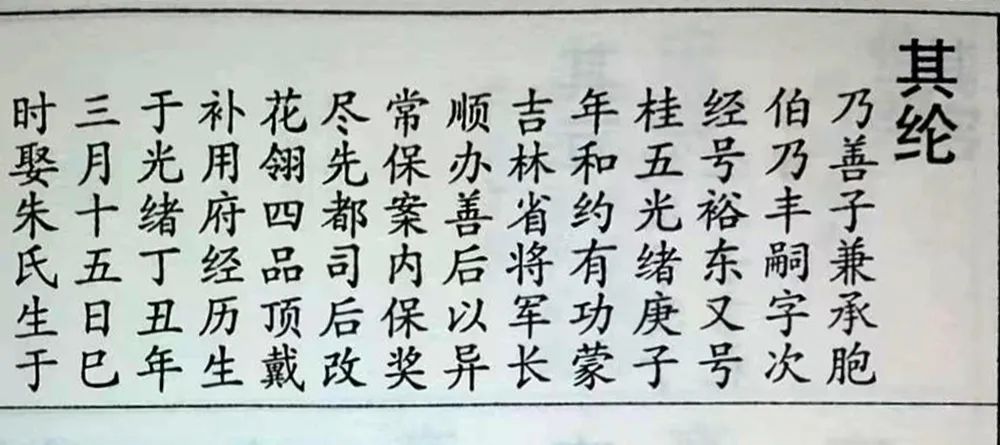 其纶
乃善子兼承胞
伯乃丰嗣字次
经号裕东又号
桂五光绪庚子
年和约有功蒙
吉林省将军长
顺办善后以异
常保案内保奖
尽先都司后改
花翎四品顶戴
补用府经历生
于光绪丁丑年
三月十五日巳
时娶朱氏生于